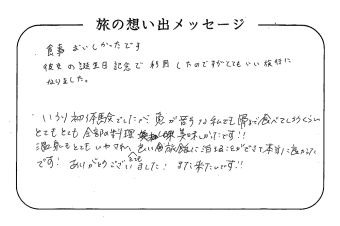 旅の想い出メッセージ
食事 おいしかったです
彼女の誕生日記念で利用したのですがとてもいい旅行に
なりました。
いろり初体験でしたが、魚が苦手な私でも骨まで食べてしまうくらい
とてもとても全部の料理 美味しかったです!!
温泉もとてもいやされ、良い旅館に泊まることができて本当に良かった
です! ありがとうございました! また来たいです!!